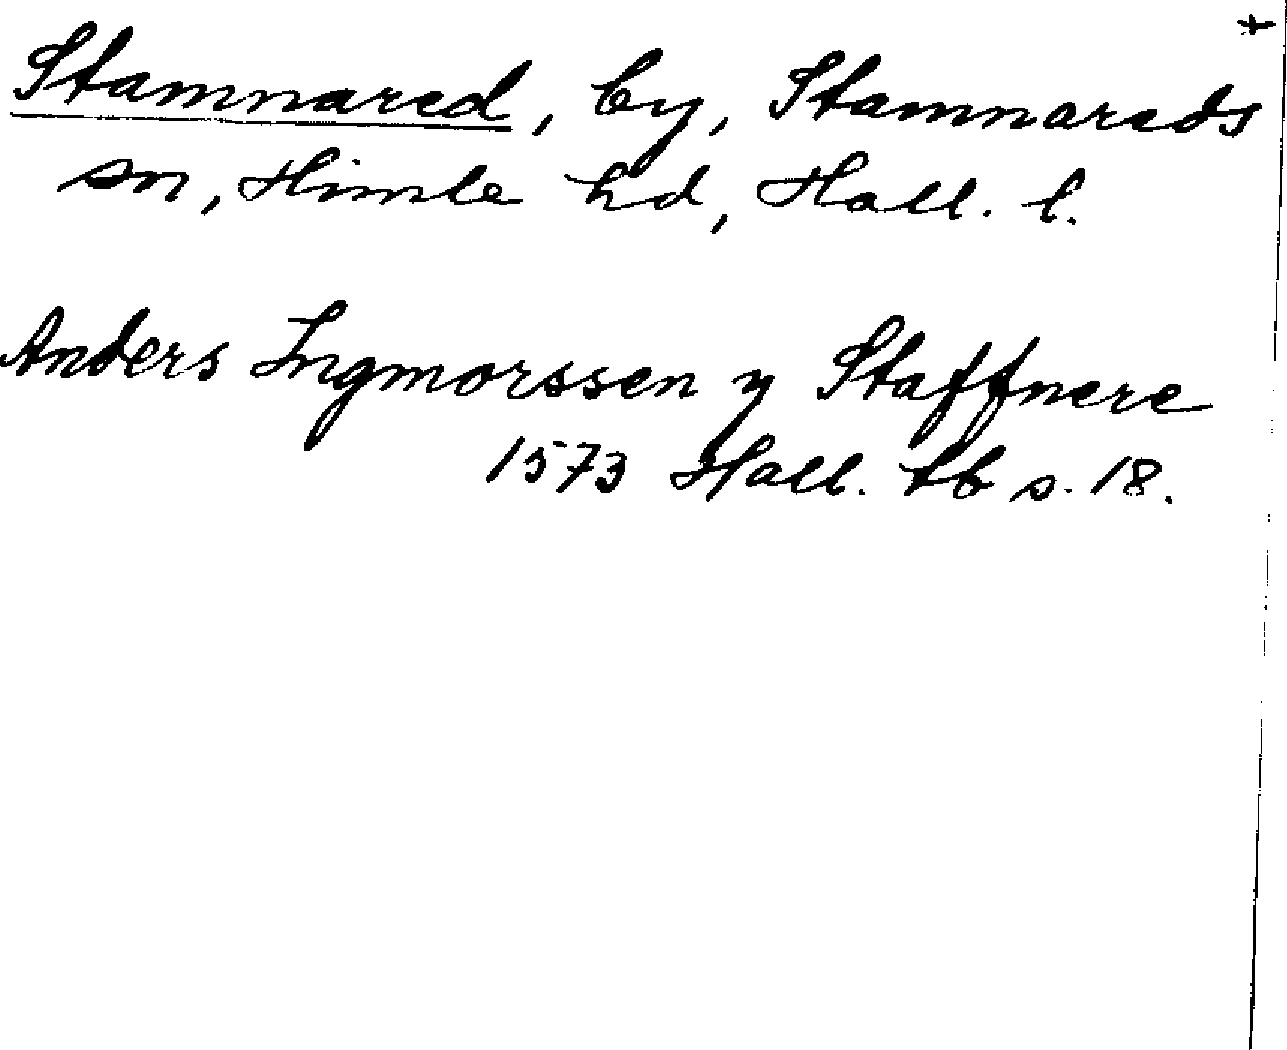 Stamnared, by, Stamnareds
sn, Himle hd, Hall. l.
Anders Ingmorssen y Staffnere
1573 Hall. tb s. 18.